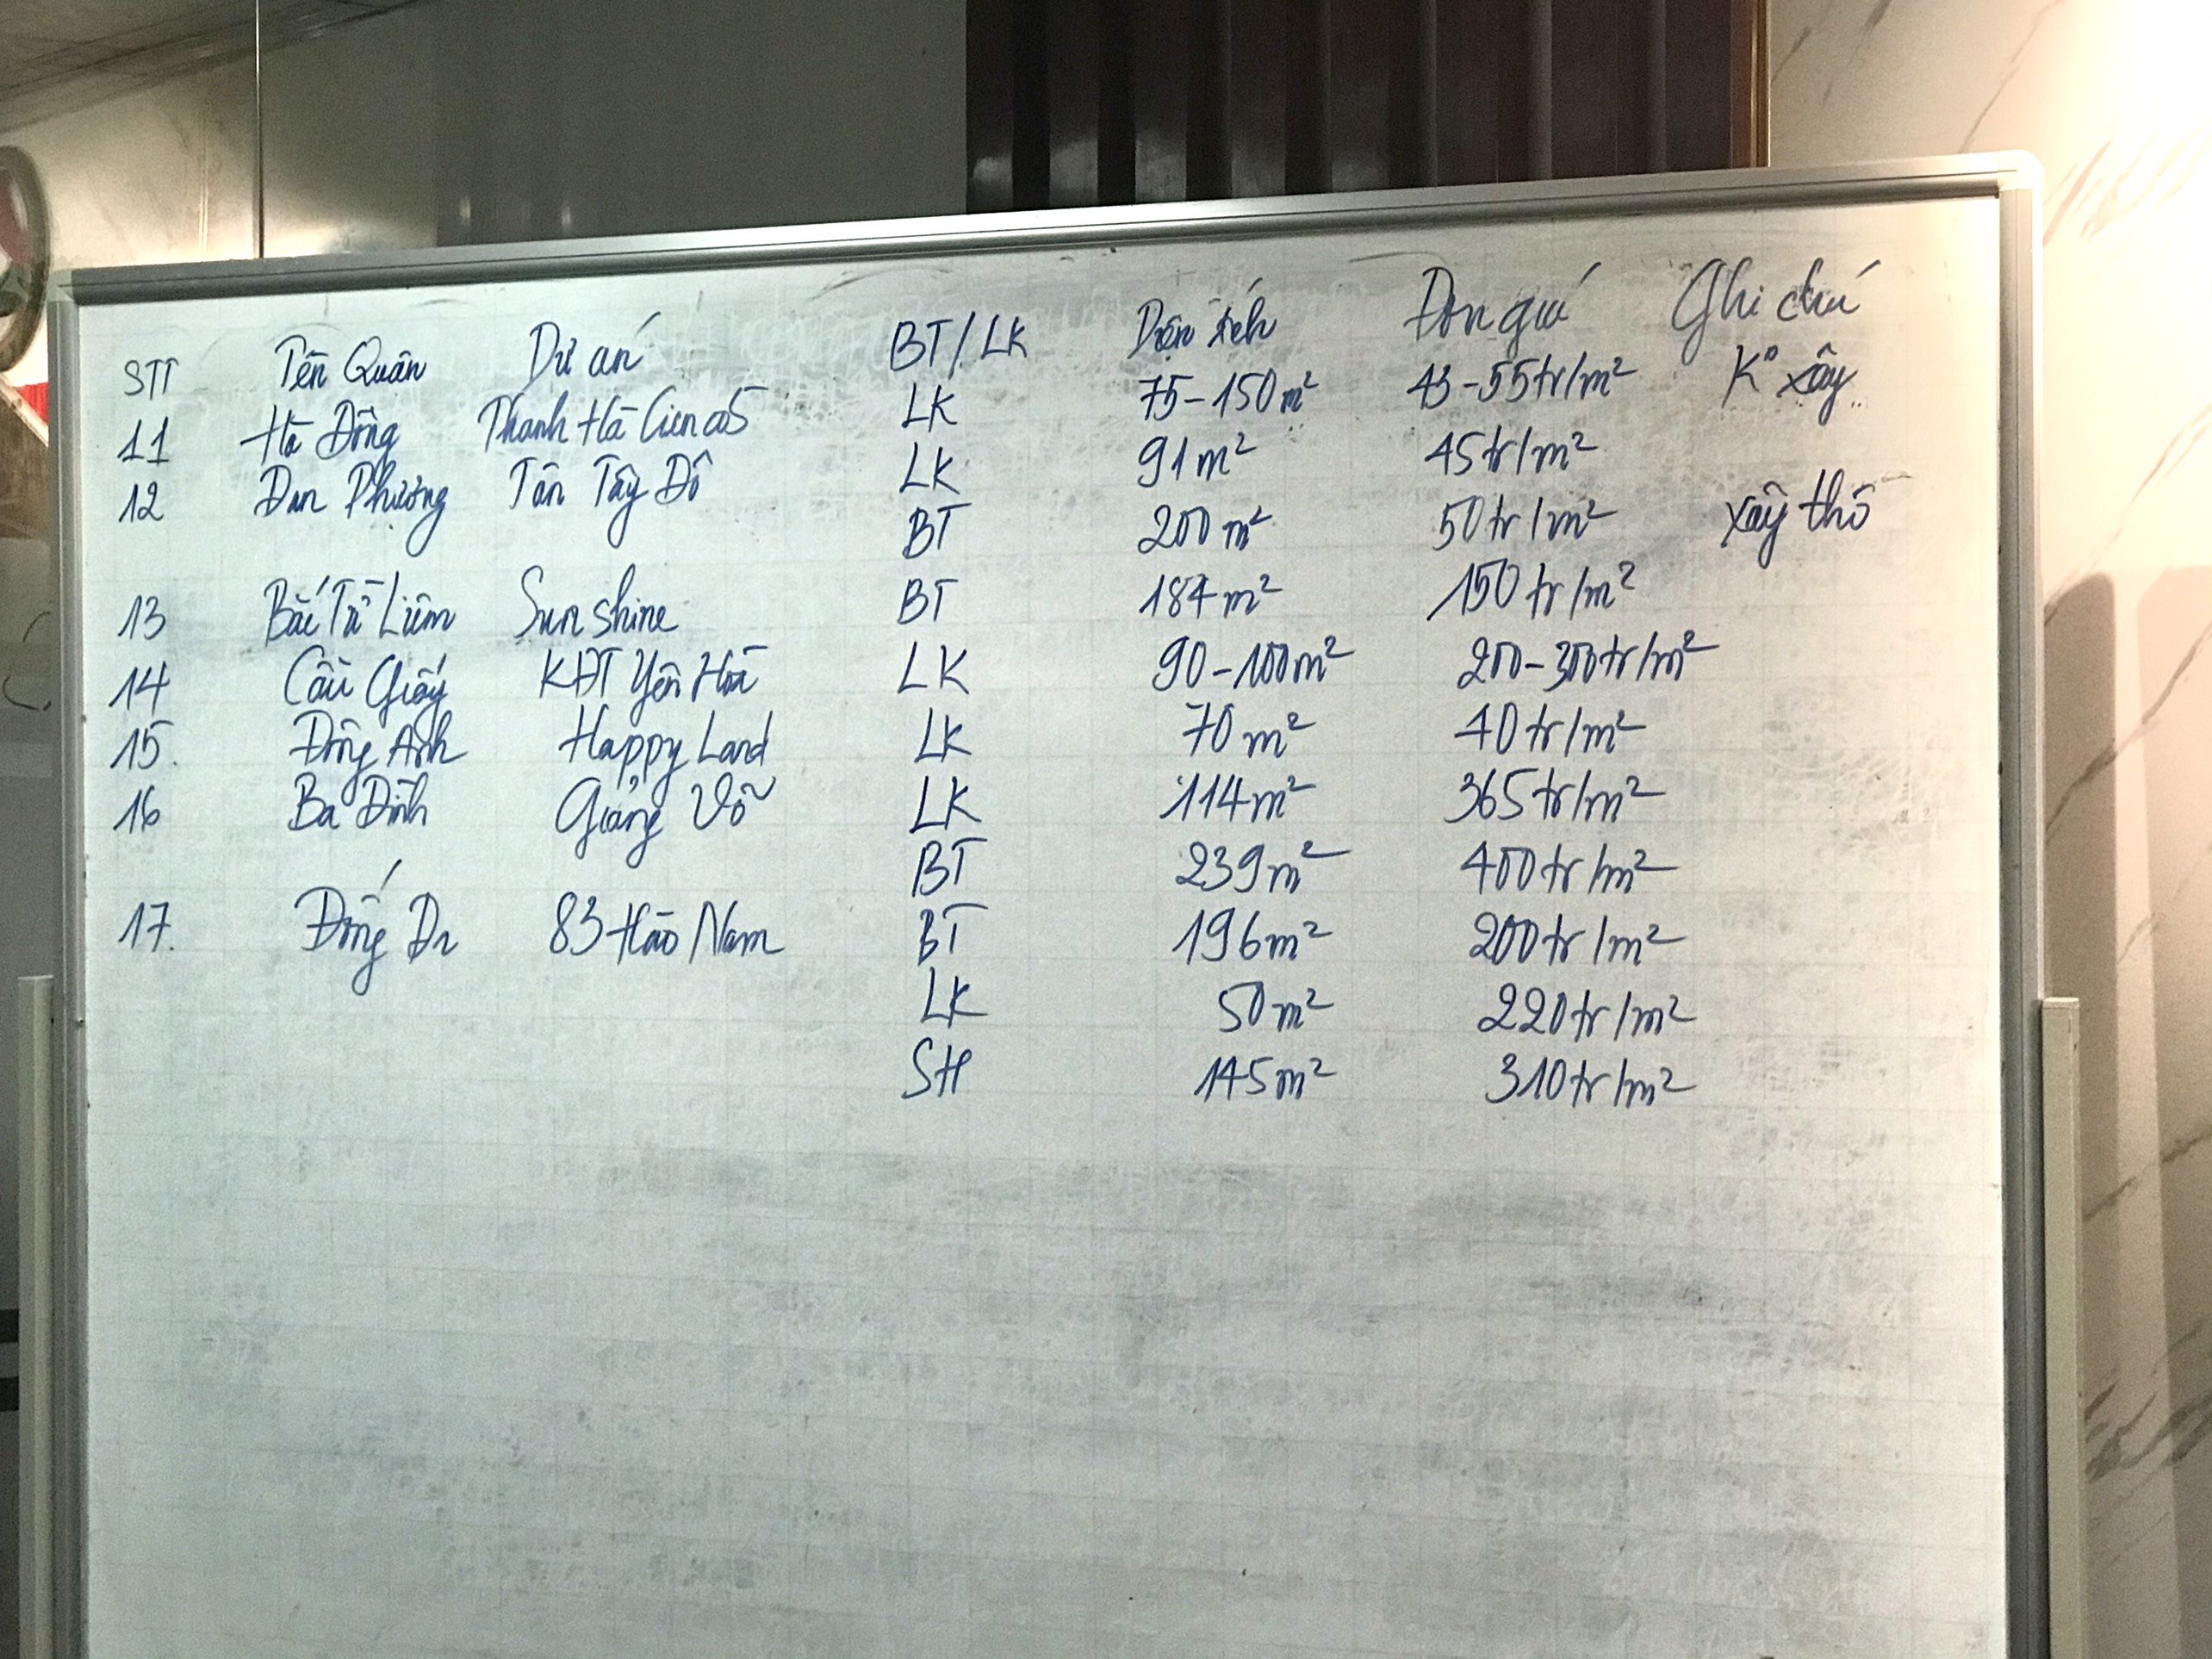 STT Tên Quân Dự án BT/LK Diện tích Đơn giá Ghi chú
11 Hà Đông Thanh Hà Cienco5 LK 75-150m² 43-55tr/m² K° xây
12 Đan Phượng Tân Tây Đô LK 91m² 45tr/m²
BT 200m² 50tr/m² xây thô
13 Bắc Từ Liêm Sunshine BT 184m² 150tr/m²
14 Cầu Giấy KĐT Yên Hoà LK 90-100m² 200-300tr/m²
15. Đông Anh Happy Land LK 70m² 40tr/m²
16 Ba Đình Giảng Võ LK 114m² 365tr/m²
BT 239m² 400tr/m²
17. Đống Đa 83 Hào Nam BT 196m² 200tr/m²
LK 50m² 220tr/m²
SH 145m² 310tr/m²